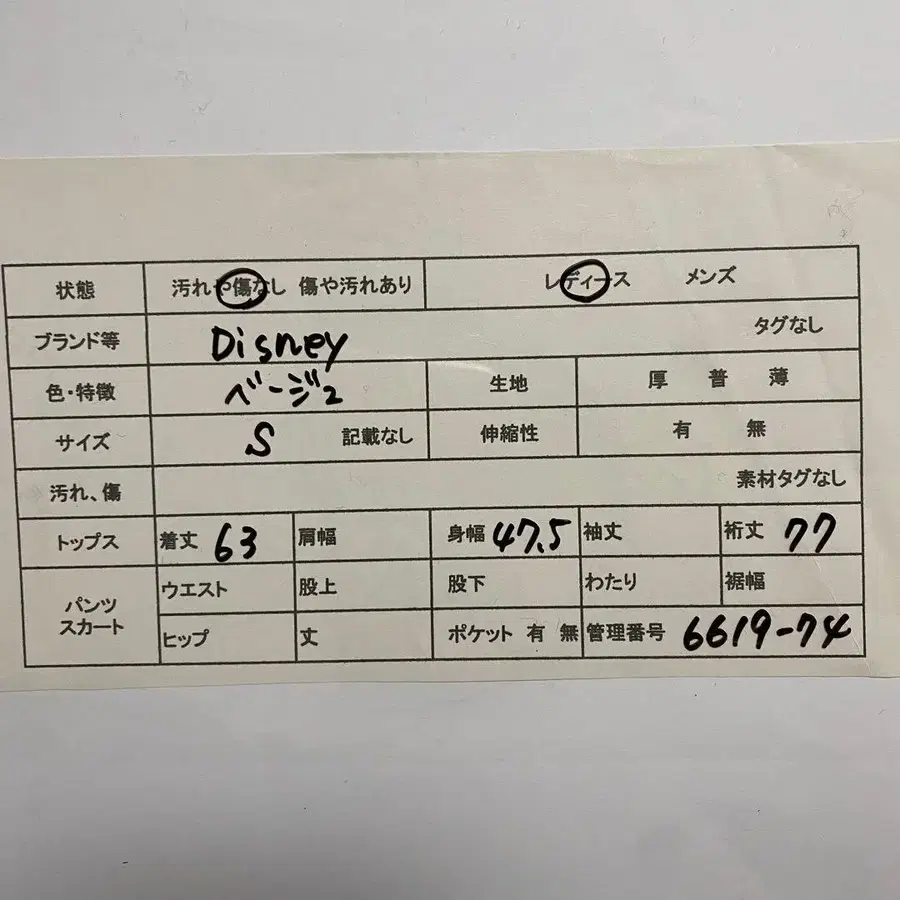 状態 汚れや傷なし 傷や汚れあり レディース メンズ
ブランド等 Disney タグなし
色・特徴 ベージュ 生地 厚 普 薄
サイズ S 記載なし 伸縮性 有 無
汚れ、傷 素材タグなし
トップス 着丈 63 肩幅 身幅 47.5 袖丈 裄丈 77
パンツ スカート ウエスト 股上 股下 わたり 裾幅
ヒップ 丈 ポケット 有 無 管理番号 6619-74